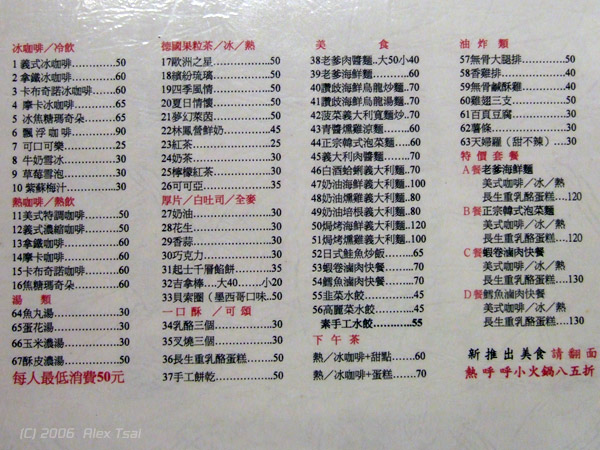 冰咖啡／冷飲
1 義式冰咖啡............50
2 拿鐵冰咖啡............60
3 卡布奇諾冰咖啡......60
4 摩卡冰咖啡............65
5 冰焦糖瑪奇朵.........65
6 飄浮咖啡...............90
7 可口可樂...............25
8 牛奶雪冰...............30
9 草莓雪泡...............30
10 紫蘇梅汁..............30
熱咖啡／熱飲
11美式特調咖啡.........50
12義式濃縮咖啡.........50
13拿鐵咖啡...............60
14摩卡咖啡...............60
15卡布奇諾咖啡.........60
16焦糖瑪奇朵............60
湯 類
64魚丸湯..................30
65蛋花湯..................30
66玉米濃湯...............30
67酥皮濃湯...............50
每人最低消費50元
德國果粒茶／冰／熱
17歐洲之星...............50
18繽紛琉璃...............50
19四季風情...............50
20夏日情懷...............50
21夢幻萊茵...............50
22林鳳營鮮奶............45
23紅茶.....................25
24奶茶.....................30
25檸檬紅茶...............30
26可可亞..................35
厚片／白吐司／全麥
27奶油.....................30
28花生.....................30
29香蒜.....................30
30巧克力..................30
31起士千層餡餅.........35
32吉拿棒....大40......小20
33貝索圈（墨西哥口味..50
一口酥／可頌
34乳酪三個...............30
35叉燒三個...............30
36長生重乳酪蛋糕......50
37手工餅乾...............70
美 食
38老爹肉醬麵..大50小40
39老爹海鮮麵............60
40讚歧海鮮烏龍炒麵..70
41讚歧海鮮烏龍湯麵..70
42菠菜義大利寬麵炒..70
43青醬燻雞涼麵.........60
44正宗韓式泡菜麵......60
45義大利肉醬麵.........70
46白酒蛤蜊義大利麵..70
47奶油海鮮義大利麵.100
48奶油燻雞義大利麵..80
49奶油培根義大利麵..80
50焗烤海鮮義大利麵.120
51焗烤燻雞義大利麵.100
52日式鮭魚炒飯.........65
53蝦卷滷肉快餐.........70
54鱈魚滷肉快餐.........70
55韭菜水餃...............45
56高麗菜水餃............45
素手工水餃............55
下午茶
熱／冰咖啡+甜點......60
熱／冰咖啡+蛋糕......70
油炸類
57無骨大腿排............50
58香雞排..................40
59無骨鹹酥雞............40
60雞翅三支...............50
61百頁豆腐...............30
62薯條.....................30
63天婦羅（甜不辣）...30
特價套餐
A餐老爹海鮮麵
美式咖啡／冰／熱
長生重乳酪蛋糕...120
B餐正宗韓式泡菜麵
美式咖啡／冰／熱
長生重乳酪蛋糕...120
C餐蝦卷滷肉快餐
美式咖啡／冰／熱
長生重乳酪蛋糕...130
D餐鱈魚滷肉快餐
美式咖啡／冰／熱
長生重乳酪蛋糕...130
新推出美食 請翻面
熱呼呼小火鍋八五折
(C) 2006 Alex Tsai